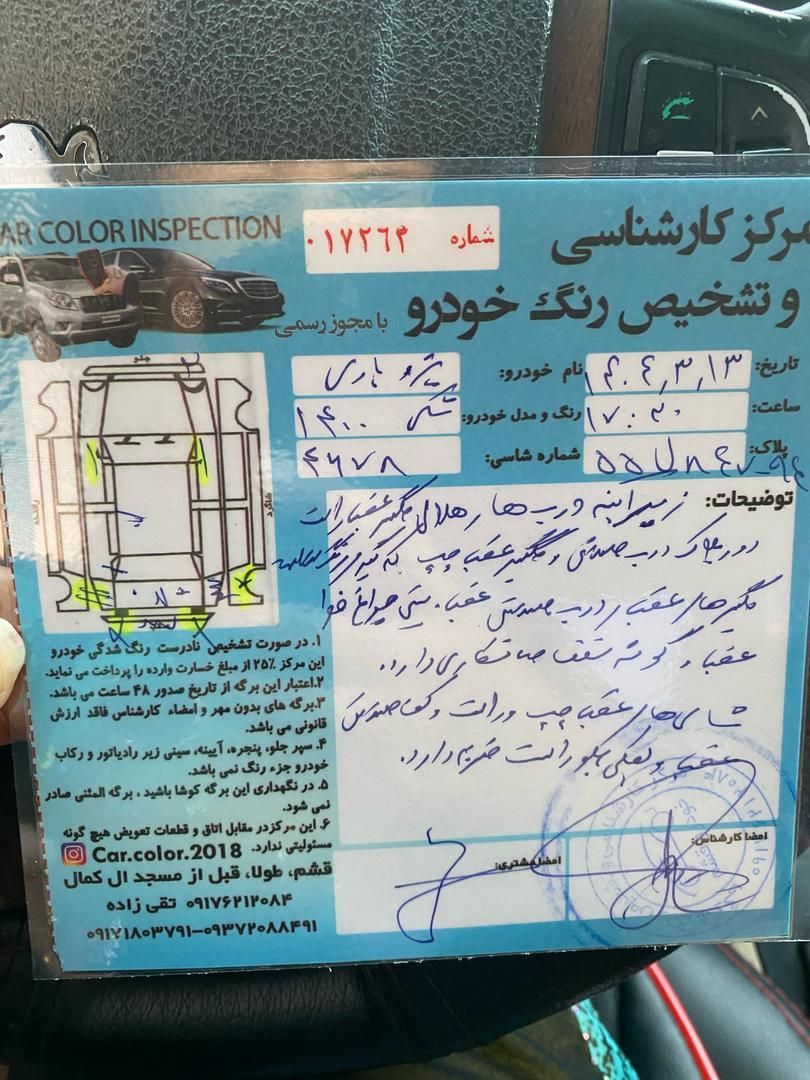 مرکز کارشناسی
و تشخیص رنگ خودرو
با مجوز رسمی
AR COLOR INSPECTION
شماره ۰۱۷۲۶۲
تاریخ: ۱۴۰۴,۳,۱۳
نام خودرو:
ساعت: ۱۷:۳۰
رنگ و مدل خودرو: مشکی ۱۴۰۰
پلاک:
شماره شاسی: ۴۶۷۸
جلو
راننده
شاگرد
توضیحات: زیر اینه درب ها هلال گلگیر عقب راست
دور پلاک درب صندوق و گلگیر عقب چپ
گلگیرهای عقب درب صندوق عقب. سینی چراغ های
عقب و گوشه سقف صافکاری دارد.
شاسی های عقب چپ و راست و کف صندوق
عقب و جلو راست ضربه دارد.
۱. در صورت تشخیص نادرست رنگ شدگی خودرو
این مرکز ۲۵٪ از مبلغ خسارت وارده را پرداخت می نماید.
۲.اعتبار این برگه از تاریخ صدور ۴۸ ساعت می باشد.
۳.برگه های بدون مهر و امضاء کارشناس فاقد ارزش
قانونی می باشد.
۴. سپر جلو، پنجره، آیینه، سینی زیر رادیاتور و رکاب
خودرو جزء رنگ نمی باشد.
۵. در نگهداری این برگه کوشا باشید ، برگه المثنی صادر
نمی شود.
۶. این مرکزدر مقابل اتاق و قطعات تعویض هیچ گونه
مسئولیتی ندارد.
Car.color.2018
قشم، طولا، قبل از مسجد ال کمال
۰۹۱۷۶۲۱۲۰۸۴ تقی زاده
۰۹۱۷۱۸۰۳۷۹۱-۰۹۳۷۲۰۸۸۴۹۱
امضا کارشناس:
امضا مشتری: